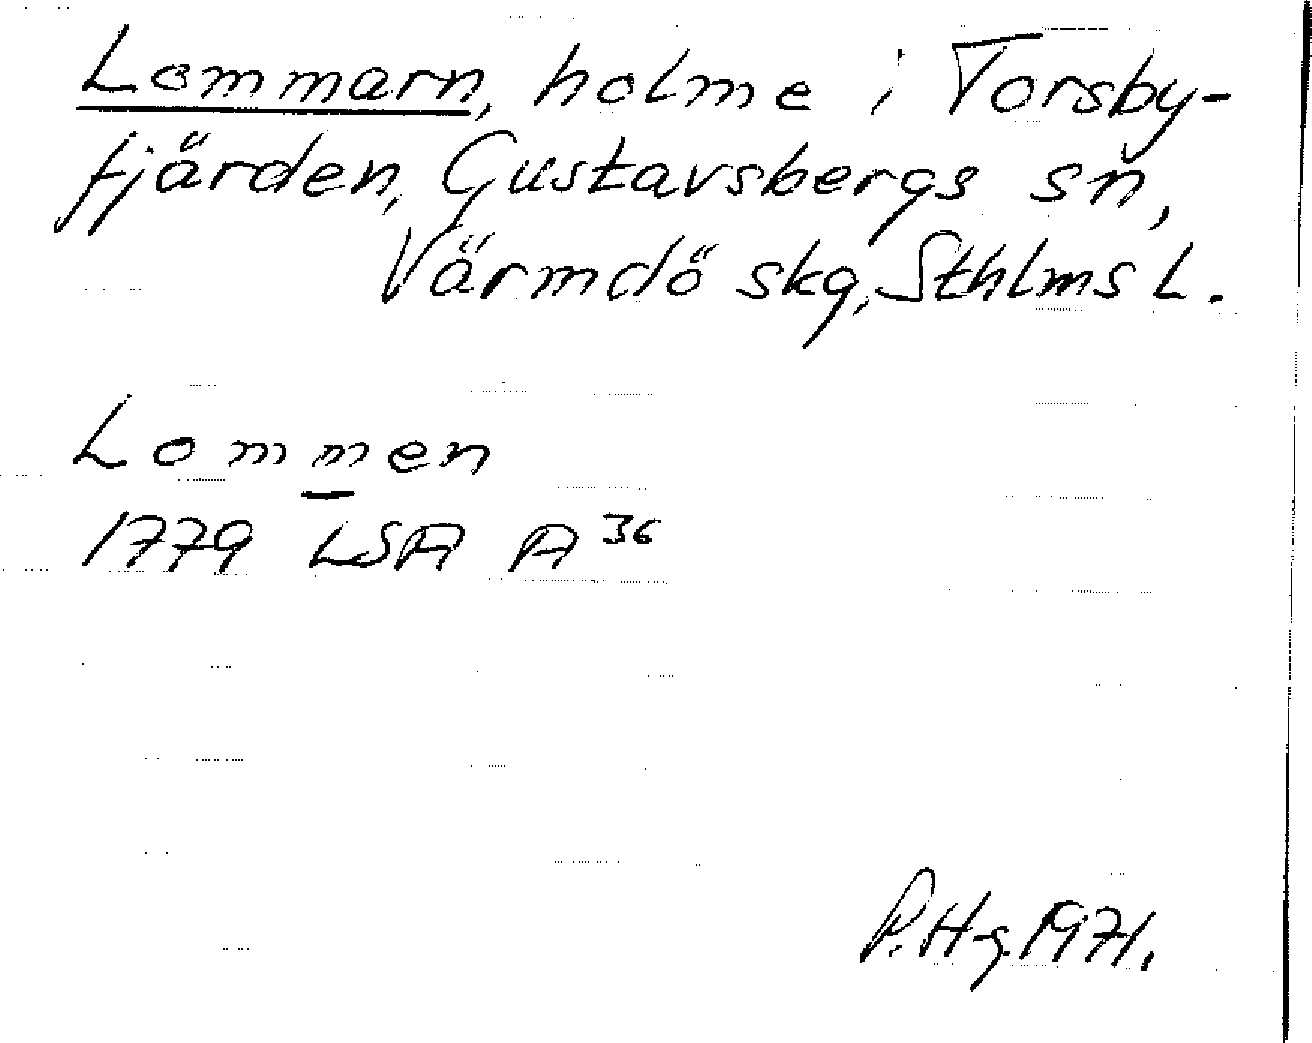 Lommarn, holme i Torsby-
fjärden, Gustavsbergs sn,
Värmdö skg, Sthlms L.
Lommen
1779 LSA A 36
P. Hg. 1971.